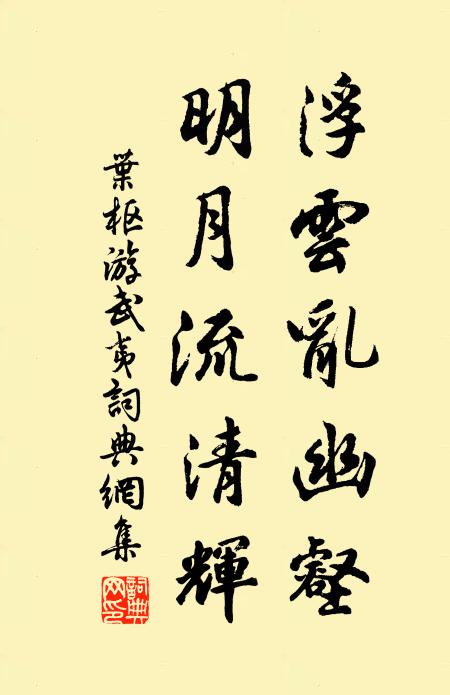 浮雲亂幽壑
明月流清輝
葉枢游武夷詞典網集
詞典
网印